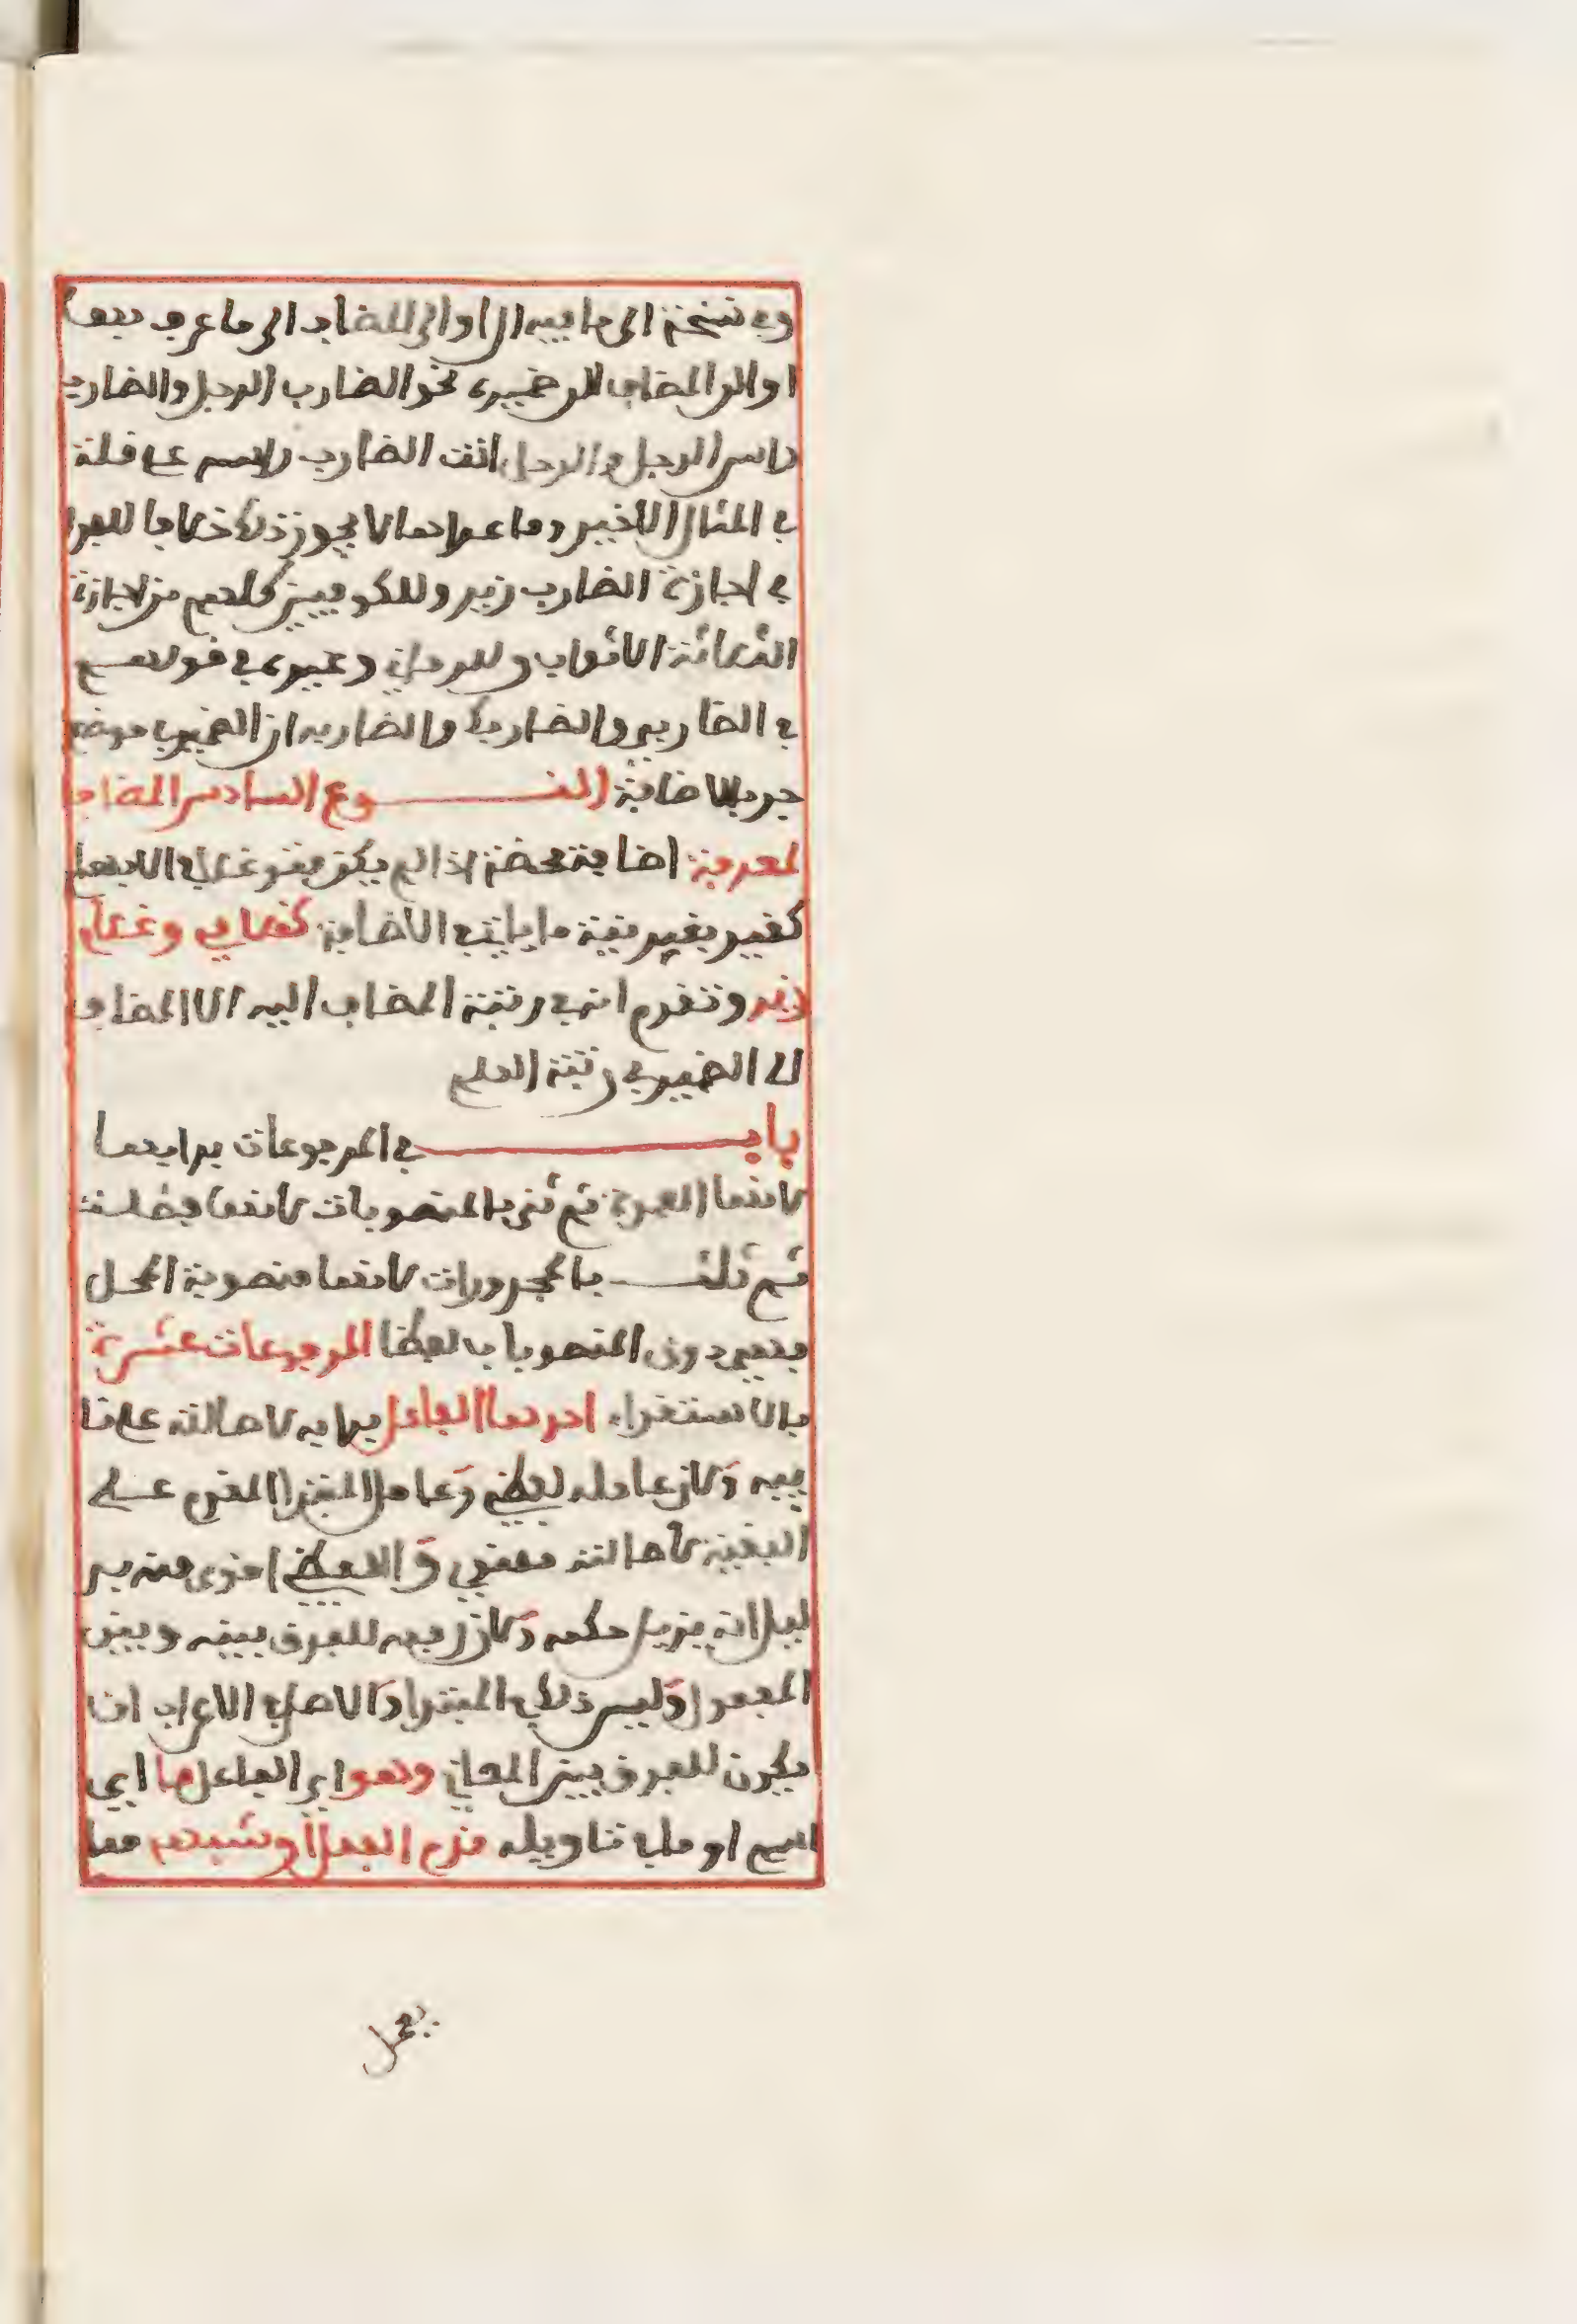 وفي نسخة الى ما فيه ال او الى المضاف الى ما عرف بها
او الى المضاف الى ضميره نحو الضارب الرجل والضارب
راس الرجل والرجل انت الضارب راسه على قلة
في المثال الاخير وما عداها لا يجوز ذلك خلافا للفرا
في اجازة الضارب زيد وللكوفيين كلهم من اجازة
الثلاثة الاثواب وللرماني وغيره في قولهم
في الضاربي والضاربك والضاربه ان الضمير في موضع
جر بالاضافة النوع السادس المضاف
لمعرفة اضافة محضة اذا لم يكن متوغلا في الابهام
كغير بغير نية ما ياتي في الاضافة كغلامي وغلام
زيد وتقدم انه في رتبة المضاف اليه الا المضاف
الى الضمير في رتبة العلم
باب في المرفوعات بدا بها
لانها العمدة ثم ثنى بالمنصوبات لانها فضلة
ثم ثلث بالمجرورات لانها منصوبة المحل
فهي دون المنصوبات لفظا المرفوعات عشرة
بالاستقراء احدها الفاعل بدا به لاصالته على نا
ييه وكان عامله لفظي وعامل المبتدا المقدم على
البقية لاصالته معنوي واللفظي اقوى منه بد
ليل انه يزيل حكمه وكان رفعه للفرق بينه وبين
المفعول وليس ذلك في المبتدا والاصل في الاعراب ان
يكون للفرق بين المعاني وهو اي الفاعل ما اي
اسم او ما في تاويله قدم الفعل او شبهه مما
يعمل